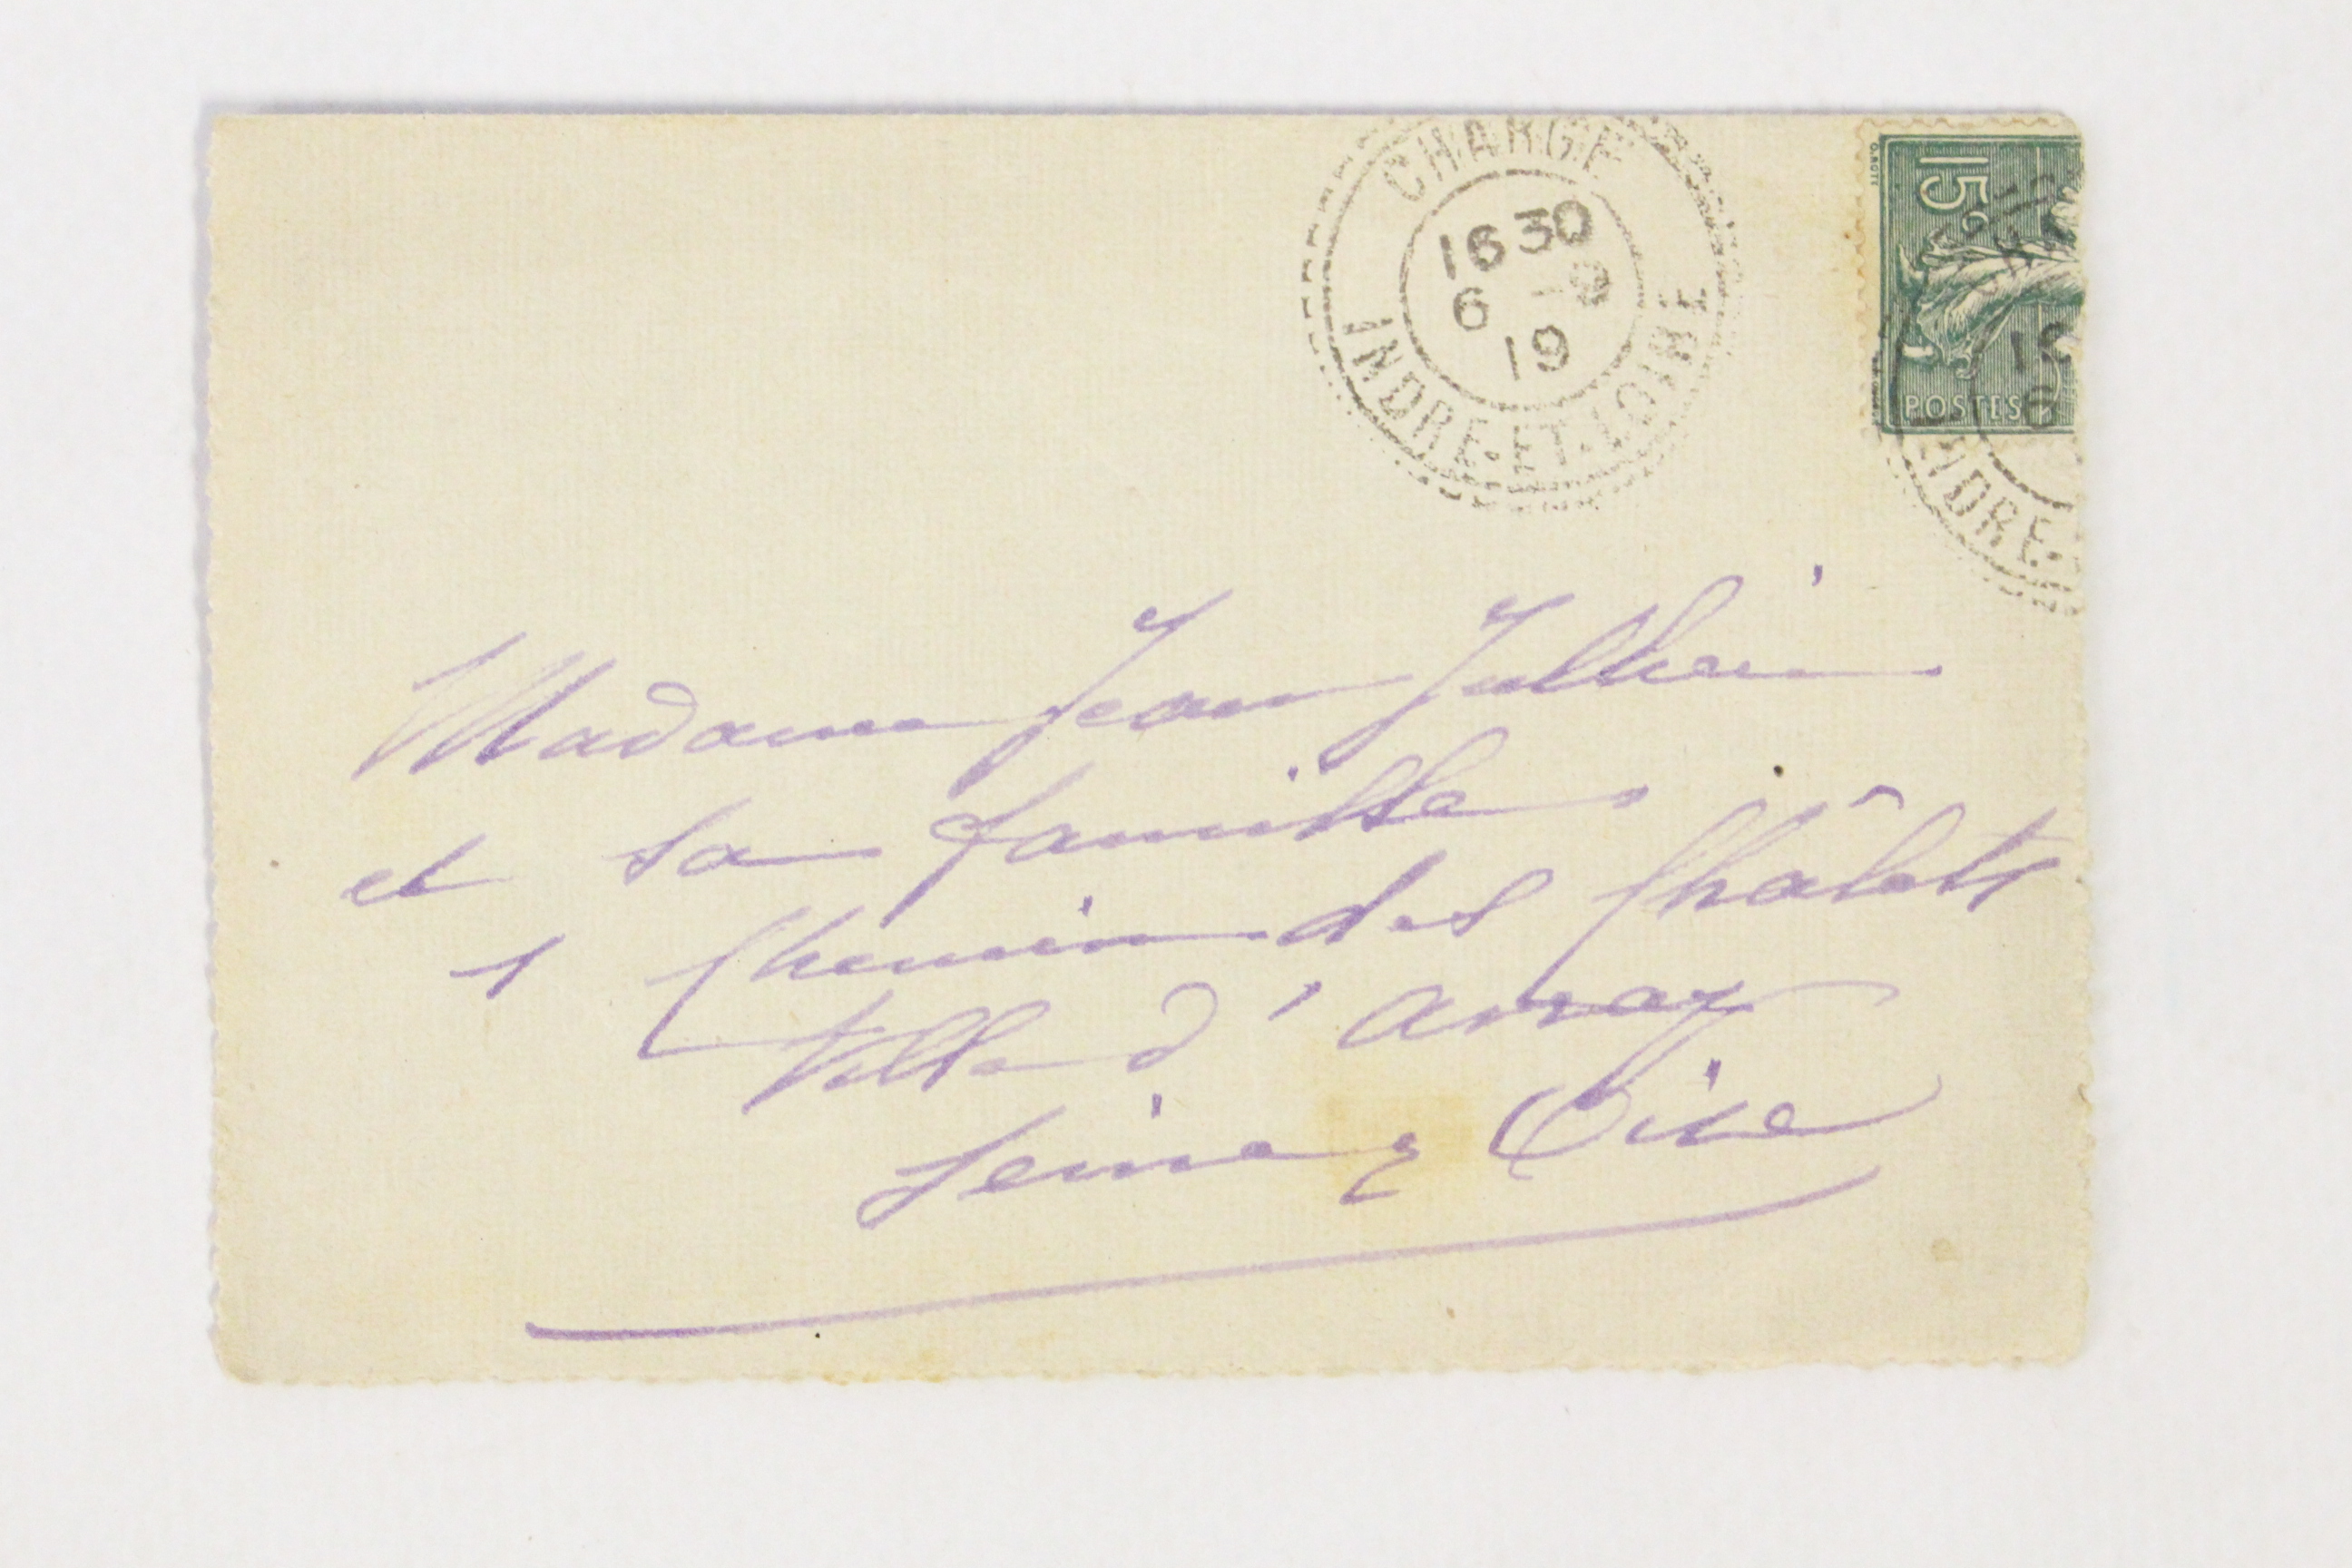 CHARGÉ
16 30
6 -9
19
INDRE-ET-LOIRE
15c
O. ROTY
POSTES
16
6
INDRE-
Madame Jean Jullien
et sa famille
1 Chemin des Châlets
Ville d'Avray
Seine & Oise